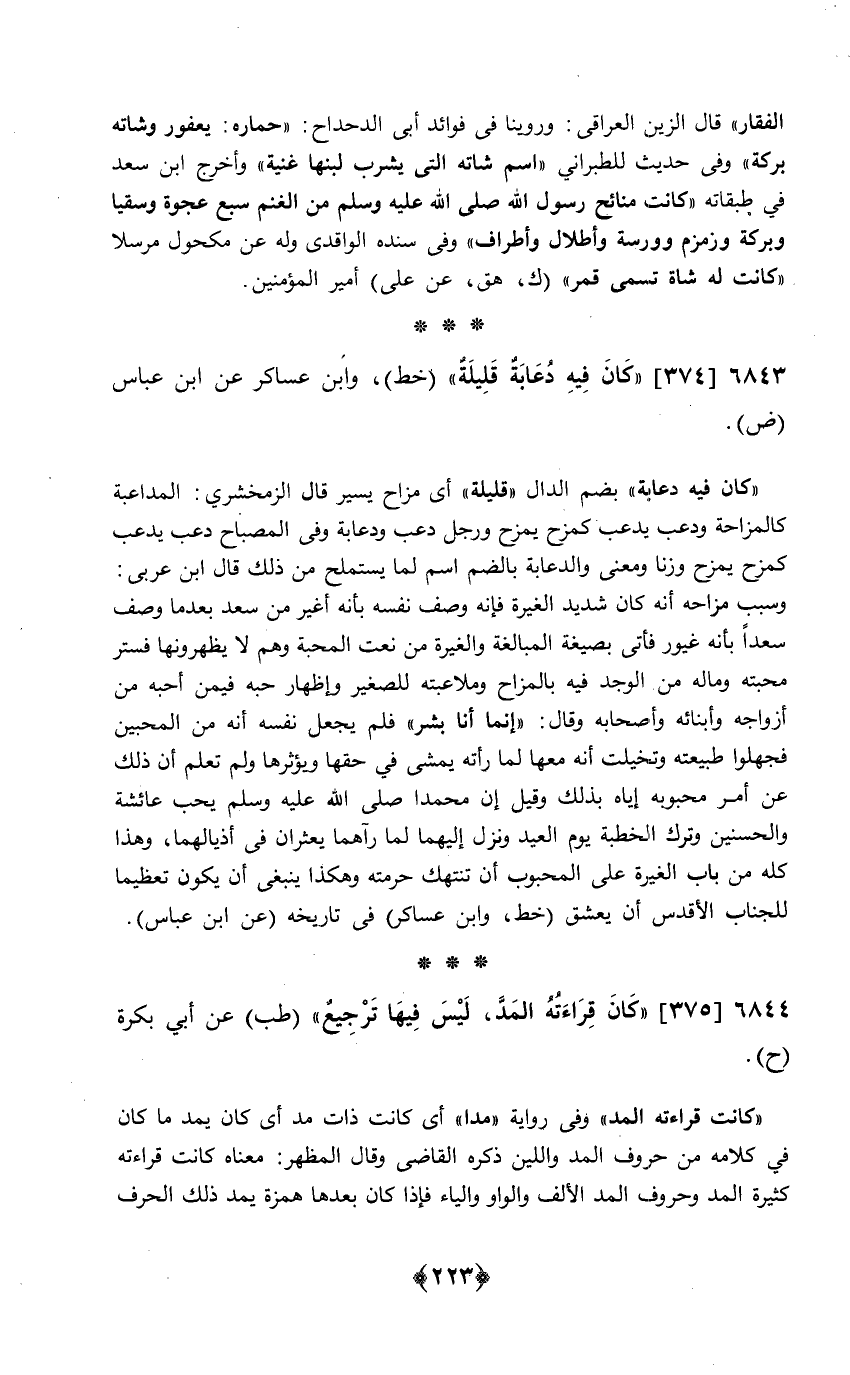 الفقار» قال الزين العراقى: وروينا فى فوائد أبى الدحداح: «حماره: يعفور وشاته
بركة» وفى حديث للطبراني «اسم شاته التى يشرب لبنها غنية» وأخرج ابن سعد
في طبقاته «كانت منائح رسول الله صلى الله عليه وسلم من الغنم سبع عجوة وسقيا
وبركة وزمزم وورسة وأطلال وأطراف» وفى سنده الواقدى وله عن مكحول مرسلا
«كانت له شاة تسمى قمر» (ك، هق، عن على) أمير المؤمنين.
* * *
٦٨٤٣ [٣٧٤] «كَانَ فِيهِ دُعَابَةٌ قَلِيلَةٌ» (خط)، وابن عساكر عن ابن عباس
(ض).
«كان فيه دعابة» بضم الدال «قليلة» أى مزاح يسير قال الزمخشري: المداعبة
كالمزاحة ودعب يدعب كمزح يمزح ورجل دعب ودعابة وفى المصباح دعب يدعب
كمزح يمزح وزنا ومعنى والدعابة بالضم اسم لما يستملح من ذلك قال ابن عربى:
وسبب مزاحه أنه كان شديد الغيرة فإنه وصف نفسه بأنه أغير من سعد بعدما وصف
سعداً بأنه غيور فأتى بصيغة المبالغة والغيرة من نعت المحبة وهم لا يظهرونها فستر
محبته وماله من الوجد فيه بالمزاح وملاعبته للصغير وإظهار حبه فيمن أحبه من
أزواجه وأبنائه وأصحابه وقال: «إنما أنا بشر» فلم يجعل نفسه أنه من المحبين
فجهلوا طبيعته وتخيلت أنه معها لما رأته يمشى في حقها ويؤثرها ولم تعلم أن ذلك
عن أمر محبوبه إياه بذلك وقيل إن محمدا صلى الله عليه وسلم يحب عائشة
والحسنين وترك الخطبة يوم العيد ونزل إليهما لما رآهما يعثران فى أذيالهما، وهذا
كله من باب الغيرة على المحبوب أن تنتهك حرمته وهكذا ينبغى أن يكون تعظيما
للجناب الأقدس أن يعشق (خط، وابن عساكر) فى تاريخه (عن ابن عباس).
* * *
٦٨٤٤ [٣٧٥] «كَانَ قِرَاءَتُهُ المَدَّ، لَيْسَ فِيهَا تَرْجِيعٌ» (طب) عن أبي بكرة
(ح).
«كانت قراءته المد» وفى رواية «مدا» أى كانت ذات مد أى كان يمد ما كان
في كلامه من حروف المد واللين ذكره القاضى وقال المظهر: معناه كانت قراءته
كثيرة المد وحروف المد الألف والواو والياء فإذا كان بعدها همزة يمد ذلك الحرف
﴿٢٢٣﴾